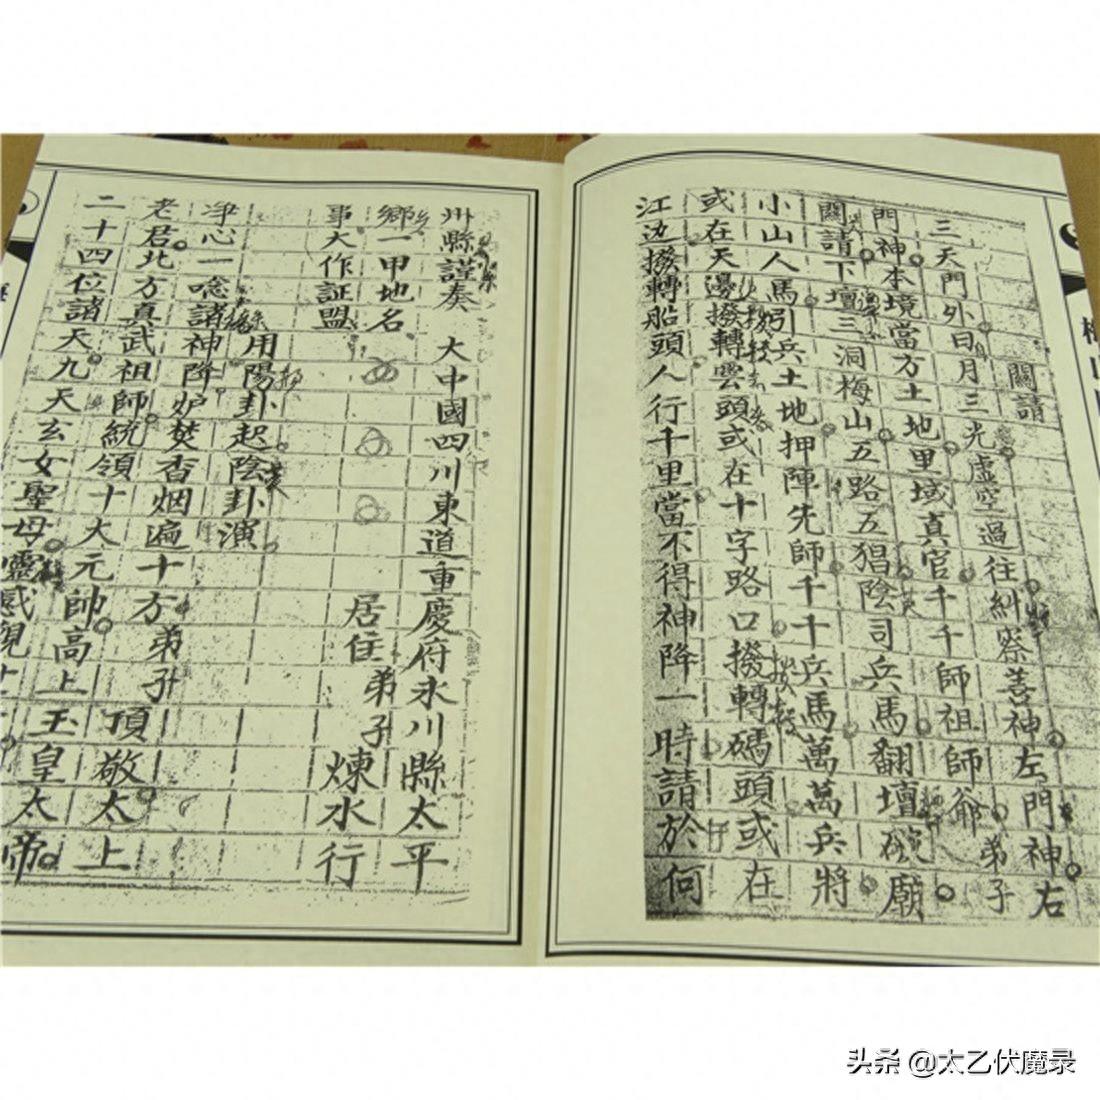 關請
三天門外日月三光虛空過往糾察善神左門神右
門神本境當方土地里域真官千千師祖師爺弟子
關請下壇三洞梅山五路五猖陰司兵馬翻壇破廟
小山人馬引兵土地押陣先師千千兵馬萬萬兵將
或在天邊撥轉雲頭或在十字路口撥轉碼頭或在
江边撥轉船頭人行千里當不得神降一時請於何
州縣謹奏 大中國四川東道重慶府永川縣太平
鄉一甲地名 居住弟子煉水行
事大作証盟
用陽卦起陰卦演
净心一唸諸神降炉焚香烟遍十方弟子頂敬太上
老君北方真武祖師統領十大元帥高上玉皇太帝
二十四位諸天九天玄女聖母靈感观
头条 @太乙伏魔录